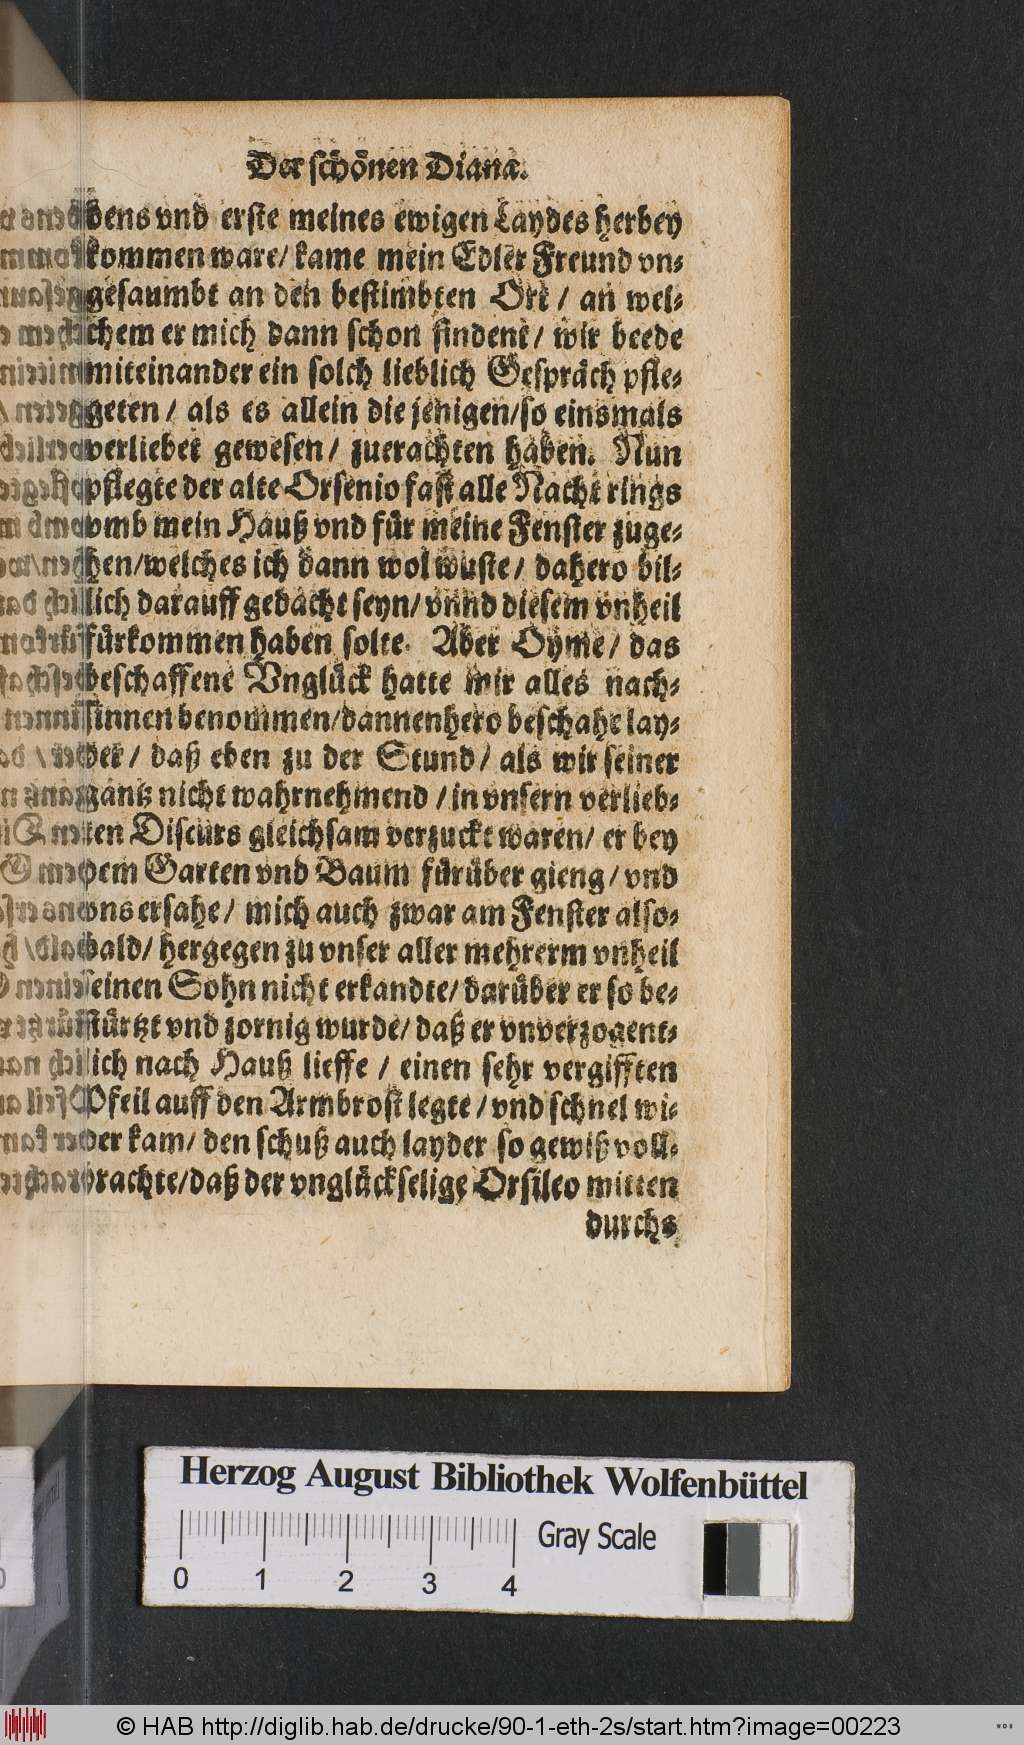 Der schönen Dianæ.
dens vnd erste meines ewigen Laydes herbey
kommen ware/ kame mein Edler Freund vn-
gesaumbt an den bestimbten Ort / an wel-
chem er mich dann schon findent/ wir beede
miteinander ein solch lieblich Gespräch pfle-
geten / als es allein die jenigen/so einsmals
verliebet gewesen/ zuerachten haben. Nun
pflegte der alte Orsenio fast alle Nacht rings
vmb mein Hauß vnd für meine Fenster zuge-
hen/welches ich dann wol wuste/ dahero bil-
lich darauff gedacht seyn/ vnnd diesem vnheil
fürkommen haben solte. Aber Oyme/ das
beschaffene Vnglück hatte mir alles nach-
sinnen benommen/dannenhero beschahe lay-
der/ daß eben zu der Stund/ als wir seiner
gäntz nicht wahrnehmend /in vnsern verlieb-
ten Discurs gleichsam verzuckt waren/ er bey
dem Garten vnd Baum fürüber gieng/ vnd
vns ersahe/ mich auch zwar am Fenster also-
bald/ hergegen zu vnser aller mehrerm vnheil
seinen Sohn nicht erkandte/ darüber er so be-
stürtzt vnd zornig wurde/ daß er vnverzogent-
lich nach Hauß lieffe / einen sehr vergifften
Pfeil auff den Armbrost legte /vnd schnel wi-
der kam/ den schuß auch layder so gewiß voll-
brachte/daß der vnglückselige Orsileo mitten
durchs
Herzog August Bibliothek Wolfenbüttel
Gray Scale
0 1 2 3 4
© HAB http://diglib.hab.de/drucke/90-1-eth-2s/start.htm?image=00223